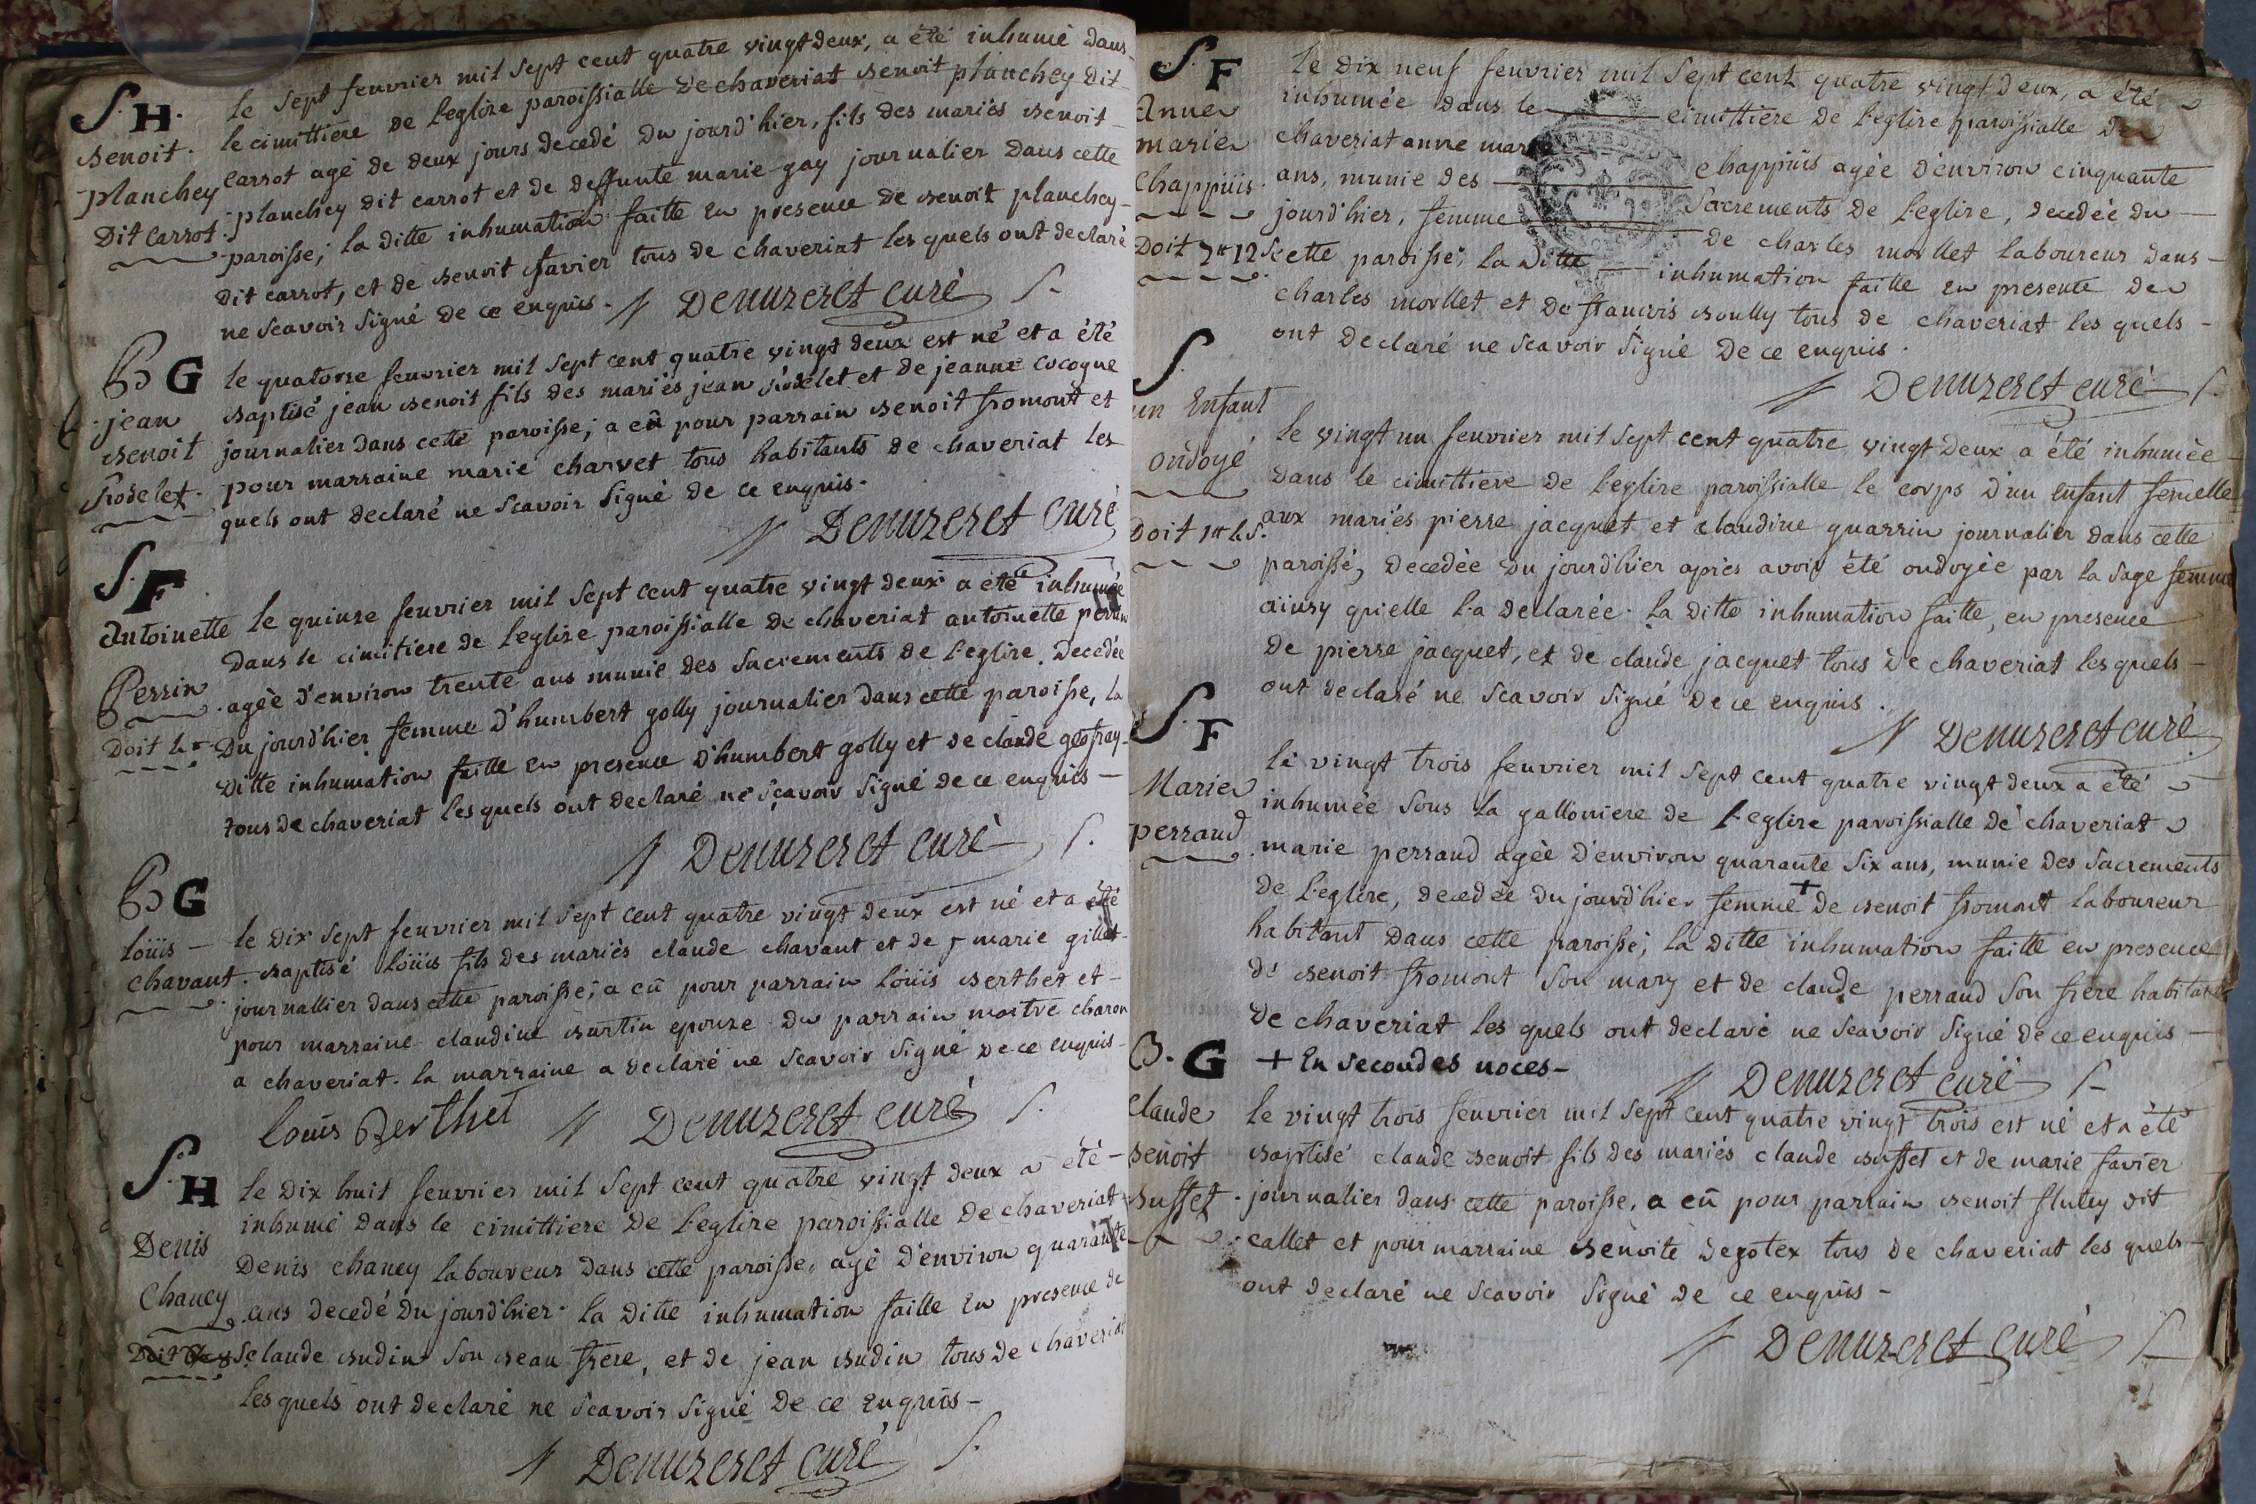 S. H.
Benoit
planchey
Dit carrot
le sept fevrier mil sept cent quatre vingt deux, a été inhumé dans
le cimittiere de l'eglise paroissialle de chaveriat benoit planchey dit
carrot agé de deux jours decedé du jourd'hier, fils des mariés benoit
planchey dit carrot et de deffunte marie gay journalier dans cette
paroisse; la ditte inhumation faitte en presence de benoit planchey
dit carrot, et de benoit favier tous de chaveriat les quels ont declaré
ne scavoir signé de ce enquis.
Denuzeret curé
B G
jean
benoit
Rodelet
le quatorze fevrier mil sept cent quatre vingt deux est né et a été
baptisé jean benoit fils des mariés jean rodelet et de jeanne cocogne
journalier dans cette paroisse; a eû pour parrain benoit fromont et
pour marraine marie charvet tous habitants de chaveriat les
quels ont declaré ne scavoir signé de ce enquis.
Denuzeret curé
S. F
Antoinette
Perrin
Doit
le quinze fevrier mil sept cent quatre vingt deux a été inhumée
dans le cimitiere de l'eglise paroissialle de chaveriat antoinette perrin
agée d'environ trente ans munie des sacrements de l'eglise. decedée
du jourd'hier femme d'humbert golly journalier dans cette paroisse, la
ditte inhumation faitte en presence d'humbert golly et de claude geofray
tous de chaveriat les quels ont declaré ne scavoir signé de ce enquis
Denuzeret curé
B G
loüis
chavant
le dix sept fevrier mil sept cent quatre vingt deux est né et a été
baptisé loüis fils des mariés claude chavant et de marie gillet
journallier dans cette paroisse; a eû pour parrain loüis berthet et
pour marraine claudine burtin epouze du parrain maitre charon
a chaveriat. la marraine a declaré ne scavoir signé de ce enquis
Louis Berthet Denuzeret curé
S. H
Denis
Chaney
le dix huit fevrier mil sept cent quatre vingt deux a été
inhumé dans le cimittiere de l'eglise paroissialle de chaveriat
Denis chaney laboureur dans cette paroisse, agé d'environ quarante
ans decedé du jourd'hier. la ditte inhumation faitte en presence de
claude budin son beau frere, et de jean budin tous de chaveriat
les quels ont declaré ne scavoir signé de ce enquis
Denuzeret curé
S. F
Anne
marie
Chappüis
Doit 7 12 S
le dix neuf fevrier mil sept cent quatre vingt deux, a été
inhumée dans le cimittiere de l'eglise paroissialle de
chaveriat anne marie chappüis agée d'environ cinquante
ans, munie des sacrements de l'eglise, decedée du
jourd'hier, femme de charles morllet laboureur dans
cette paroisse; la ditte inhumation faitte en presence de
charles morllet et de francois boully tous de chaveriat les quels
ont declaré ne scavoir signé de ce enquis.
Denuzeret curé
S.
un Enfant
ondoyé
Doit
le vingt un fevrier mil sept cent quatre vingt deux a été inhumée
dans le cimittiere de l'eglise paroissialle le corps d'un enfant femelle
aux mariés pierre jacquet et claudine guarrin journalier dans cette
paroisse, decedée du jourd'hier après avoir été ondoyée par la sage femme
ainsy qu'elle l'a declarée. la ditte inhumation faitte, en presence
de pierre jacquet, et de claude jacquet tous de chaveriat les quels
ont declaré ne scavoir signé de ce enquis.
Denuzeret curé
S. F
Marie
perraud
le vingt trois fevrier mil sept cent quatre vingt deux a été
inhumée sous la galloniere de l'eglise paroissialle de chaveriat
marie perraud agée d'environ quarante six ans, munie des sacrements
de l'eglise, decedée du jourd'hier femme + de benoit fromont laboureur
habitant dans cette paroisse; la ditte inhumation faitte en presence
de benoit fromont son mary et de claude perraud son frere habitans
de chaveriat les quels ont declaré ne scavoir signé de ce enquis
+ En secondes noces
Denuzeret curé
B. G
Claude
benoit
buffet
le vingt trois fevrier mil sept cent quatre vingt trois est né et a été
baptisé claude benoit fils des mariés claude buffet et de marie favier
journalier dans cette paroisse, a eû pour parrain benoit flutey dit
callet et pour marraine benoite degotex tous de chaveriat les quels
ont declaré ne scavoir signé de ce enquis
Denuzeret curé